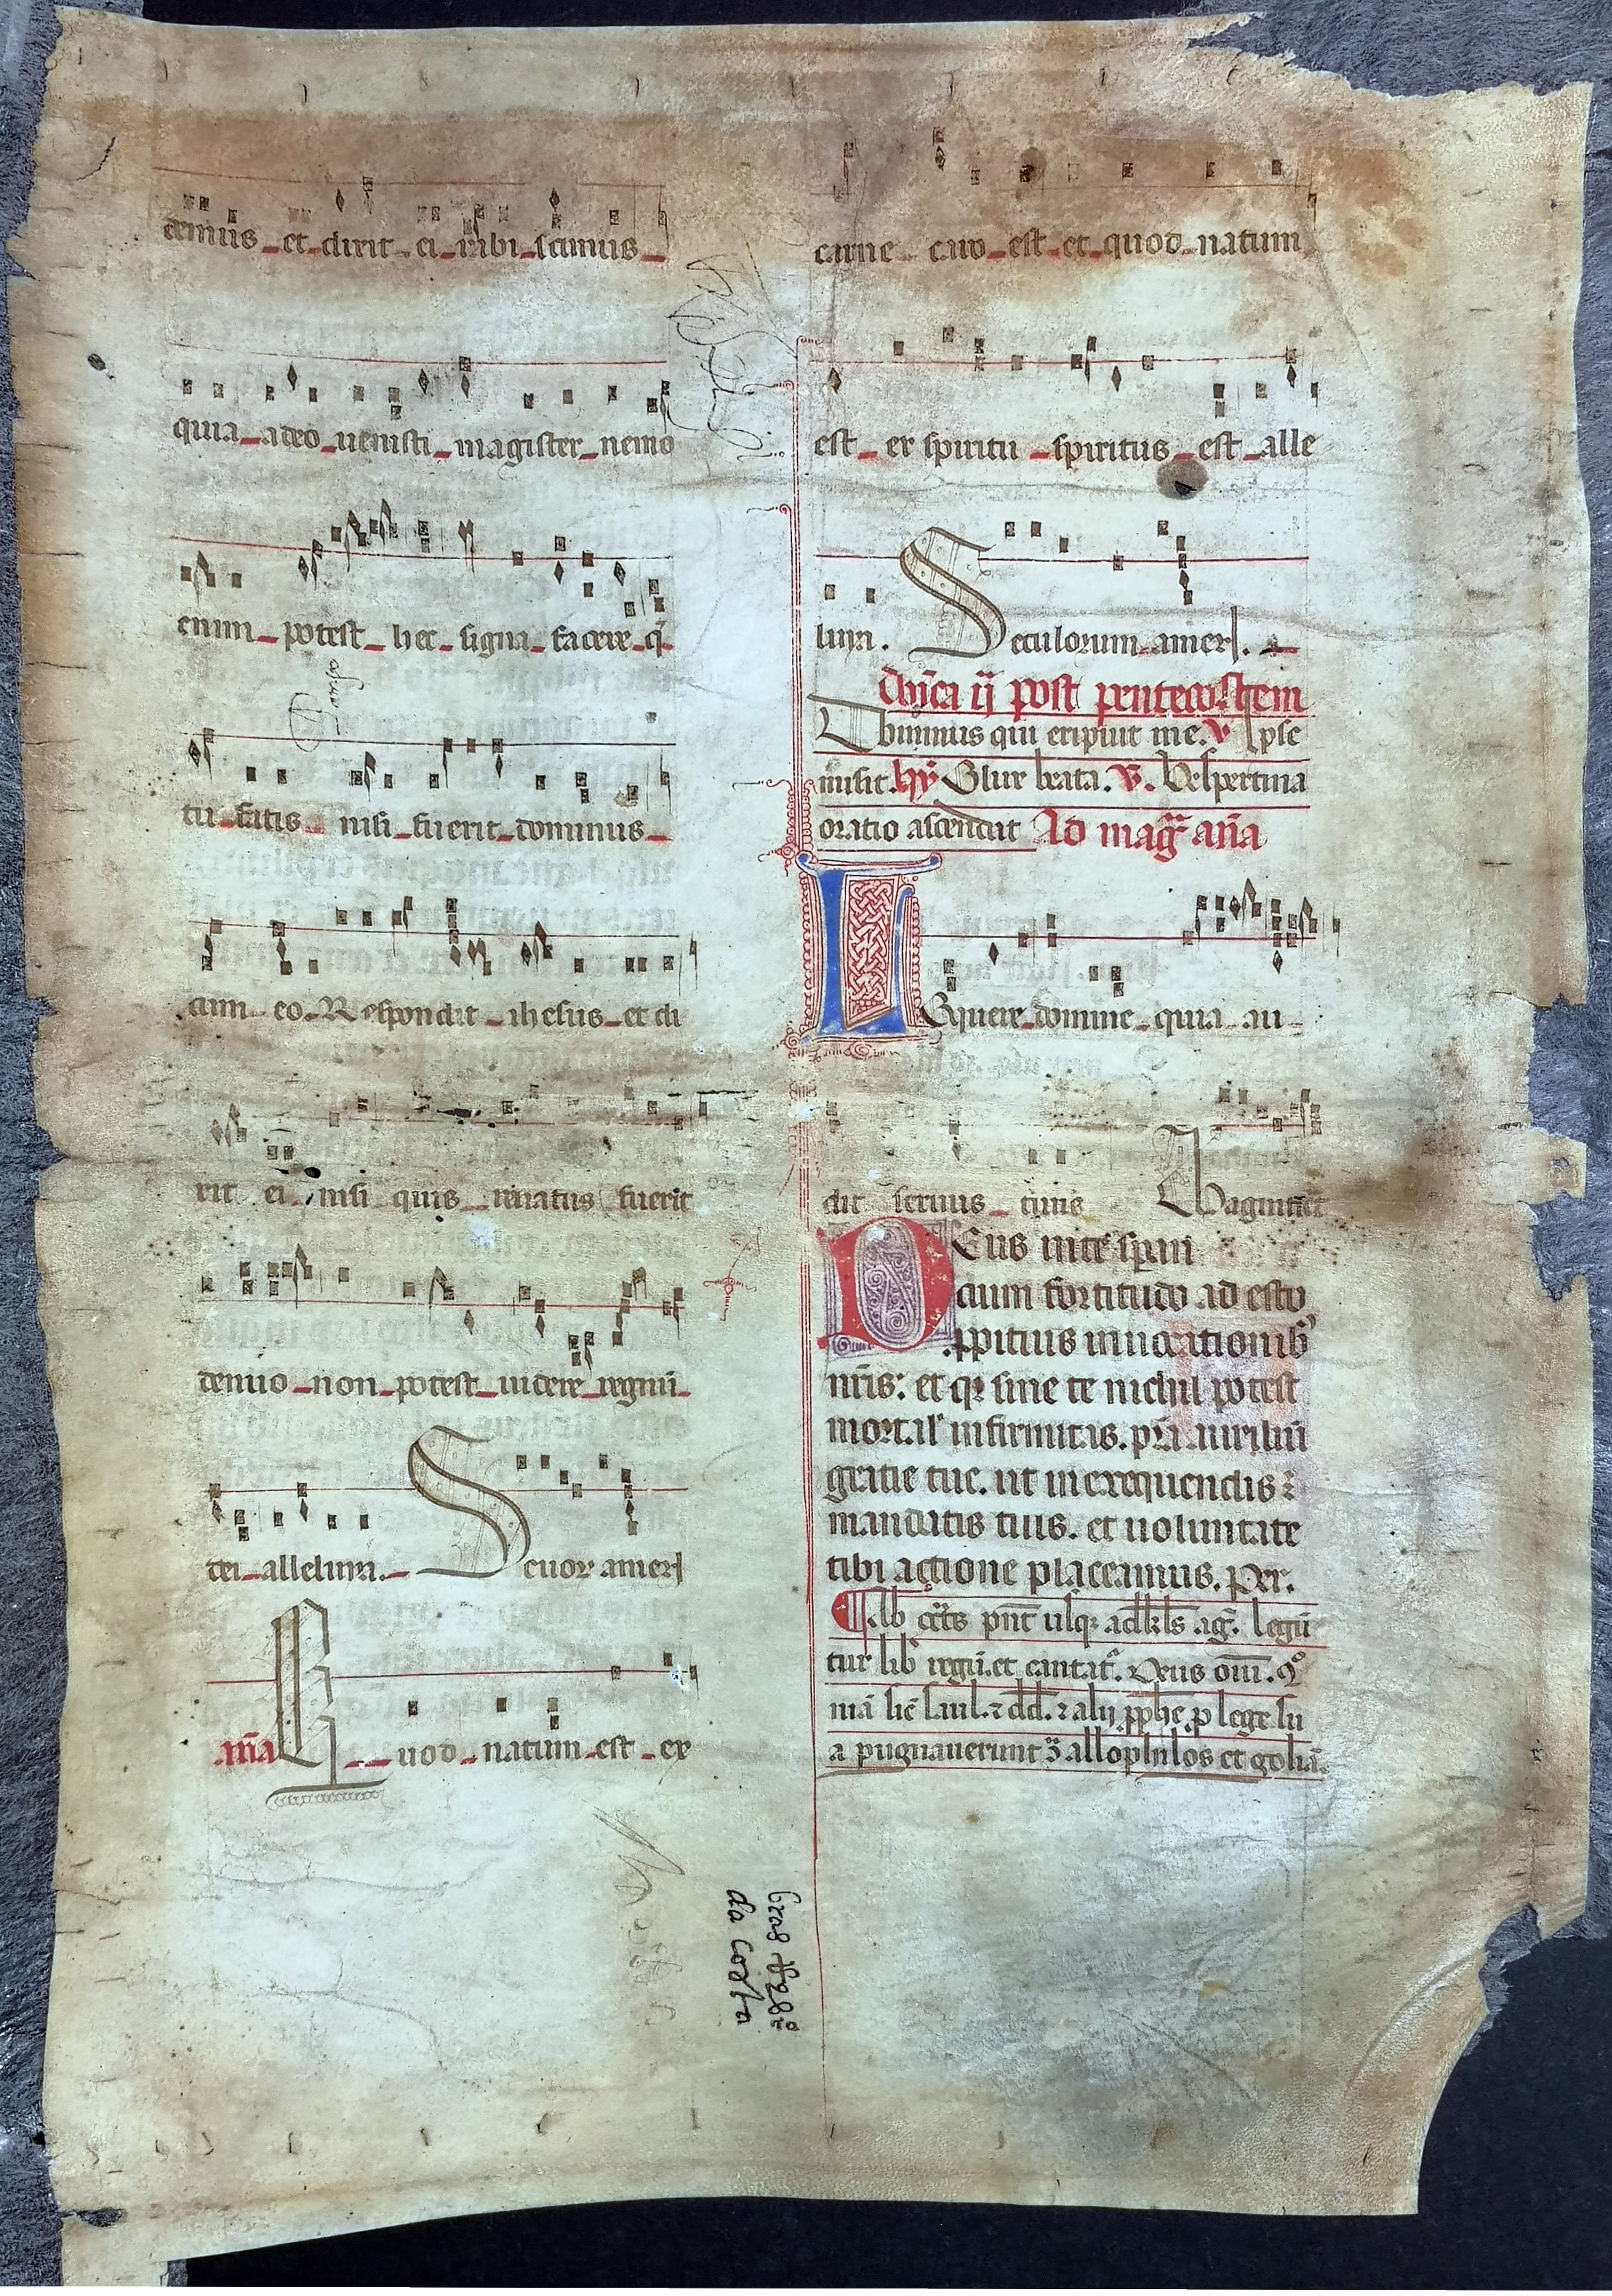 demus et dixit ei rabi scimus
quia a deo uenisti magister nemo
enim potest hec signa facere q̃
tu facis nisi fuerit dominus
cum eo. Respondit ihesus et di
xit ei nisi quis renatus fuerit
denuo non potest uidere regnũ
dei alleluya. Seuor amen
aña Quod natum est ex
carne caro est et quod natum
est ex spiritu spiritus est alle
luya. Seculorum amen.
Dñica ij post pentecostem
Dominus qui eripuit me. v Ipse
misit. hȳ O lux beata. V̄. Vespertina
oratio ascendat Ad mag̃ aña
LOquere domine quia au
dit seruus tuus Magnificat
DEus in te speran
cium fortitudo ad esto
ppitius inuocationib9
nr̃is: et q sine te nichil potest
mortal' infirmitas. p̃ta auxiliũ
gratie tue. ut in exequendis
mandatis tuis. et uoluntate
tibi actione placeamus. Per.
¶ Ab oct̃s pñt usq; ad kl̃s ag̃. legũ
tur lib' regũ. et cantat'. Deus om̃. Qº
niã hẽ saul. ⁊ dd. ⁊ alij pphe p lege su
a pugnauerunt ɔ̃ allophilos et goliã.
da costa